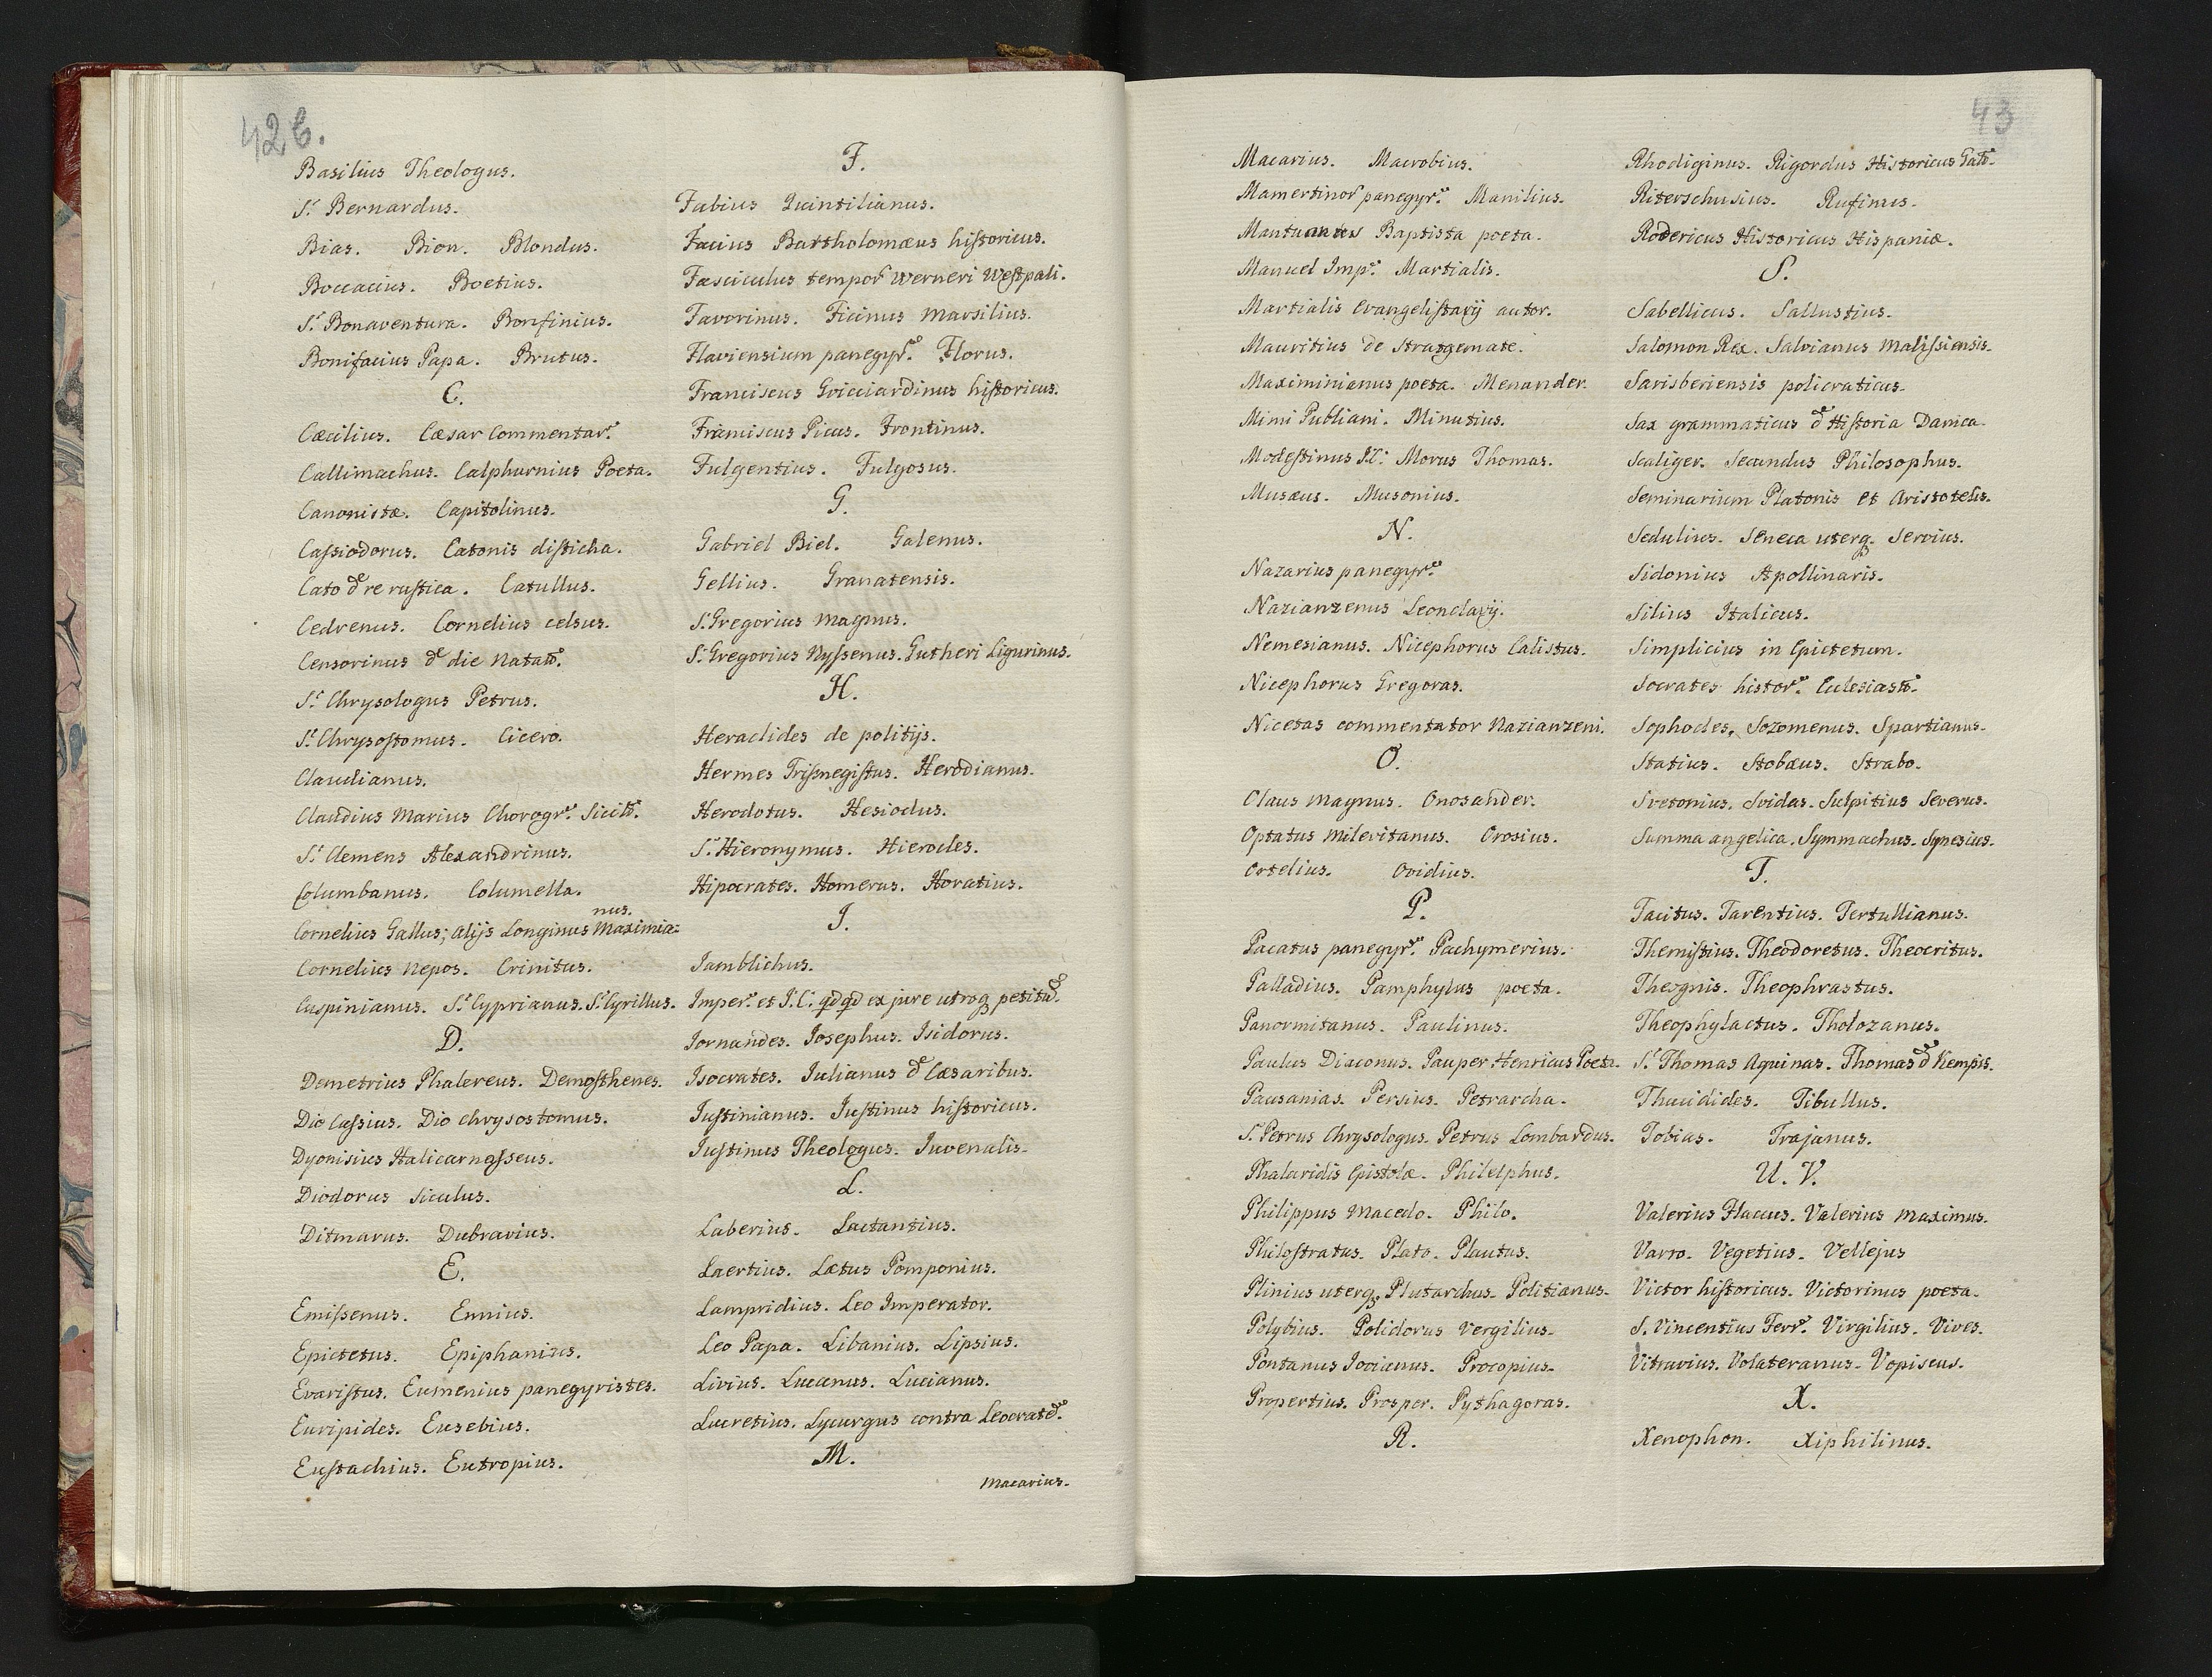 42 b.
Basilius Theologus.
S.t Bernardus.
Bias. Bion. Blondus.
Boccacius. Boetius.
S.t Bonaventura. Bonfinius.
Bonifacius Papa. Brutus.
C.
Cæcilius. Cæsar Commentar.
Callimachus. Calphurnius Poeta.
Canonistæ. Capitolinus.
Caſsiodorus. Catonis diſticha.
Cato de re ruſtica. Catullus.
Cedrenus. Cornelius celsus.
Censorinus de die Natali.
S.t Chrysologus Petrus.
S.t Chrysoſtomus. Cicero.
Claudianus.
Claudius Marius Chorogr. Sicil.
S.t Clemens Alexandrinus.
Columbanus. Columella.
Cornelius Gallus; alijs Longinus Maximia=
nus.
Cornelius Nepos. Crinitus.
Cuspinianus. S.t Cyprianus. S.t Cyrillus.
D.
Demetrius Phalereus. Demoſthenes.
Dio Caſsius. Dio Chrysostomus.
Dyonisius Halicarnaſseus.
Diodorus Siculus.
Ditmarus. Dubravius.
E.
Emiſsenus. Ennius.
Epictetus. Epiphanius.
Evariſtus. Eumenius panegyristes.
Euripides. Eusebius.
Euſtachius. Eutropius.
F.
Fabius Quintilianus.
Facius Bartholomæus hiſtoricus.
Fasciculus tempor Werneri Weſtpali.
Favorinus. Ficinus Marsilius.
Flaviensium panegyr. Florus.
Franciscus Gvicciardinus hiſtoricus.
Franciscus Picus. Frontinus.
Fulgentius. Fulgosus.
G.
Gabriel Biel. Galenus.
Gellius. Granatensis.
S. Gregorius magnus.
S. Gregorius Nyſsenus. Gutheri Ligurinus.
H.
Heraclides de politijs.
Hermes Triſmegiſtus. Herodianus.
Herodotus. Hesiodus.
S.t Hieronymus. Hierocles.
Hipocrates. Homerus. Horatius.
I.
Iamblichus.
Imper. et I.C. qd qd ex jure utroq petitu.
Iornandes. Iosephus. Isidorus.
Isocrates. Iulianus de Cæsaribus.
Iuſtinianus. Iuſtinus hiſtoricus.
Iuſtinus Theologus. Iuvenalis.
L.
Laberius. Lactantius.
Laertius. Lætus Pomponius.
Lampridius. Leo Imperator.
Leo Papa. Libanius. Lipsius.
Livius. Lucanus. Lucianus.
Lucretius. Lycurgus contra Leocrate.
M.
Macarius.
43
Macarius. Macrobius.
Mamertinor panegyr. Manilius.
Mantuanus Baptista poeta.
Manuel Imp. Martialis.
Martialis Evangeliſtarij autor.
Mauritius de Stratgemate.
Maximinianus poeta. Menander.
Mimi Publiani. Minutius.
Modeſtinus I.C. Morus Thomas.
Musæus. Musonius.
N.
Nazarius panegyr.
Nazianzenus Leonclavij.
Nemesianus. Nicephorus Calistus.
Nicephorus Gregoras.
Nicetas commentator Nazianzeni.
O.
Olaus Magnus. Onosander.
Optatus Milevitanus. Orosius.
Ortelius. Ovidius.
P.
Pacatus panegyr. Pachymerius.
Palladius. Pamphylus poeta.
Panormitanus. Paulinus.
Paulus Diaconus. Pauper Henricus Poeta.
Pausanias. Persius. Petrarcha.
S. Petrus Chrysologus. Petrus Lombardus.
Phalaridis Epistolæ. Philelphus.
Philippus Macedo. Philo.
Philoſtratus. Plato. Plautus.
Plinius uterq. Plutarchus. Politianus.
Polybius. Polidorus Vergilius.
Pontanus Iovianus. Procopius.
Propertius. Prosper. Pythagoras.
R.
Rhodiginus. Rigordus Historicus Gall.
Riterschusius. Rufinus.
Rodericus Historicus Hispaniæ.
S.
Sabellicus. Sallustius.
Salomon Rex. Salvianus Maliſsiensis.
Sarisberiensis policraticus.
Sax grammaticus de Hiſtoria Danica.
Scaliger. Secundus Philosophus.
Seminarium Platonis et Aristotelis.
Sedulius. Seneca uterq. Servius.
Sidonius Apollinaris.
Silius Italicus.
Simplicius in Epictetum.
Socrates histor. Ecclesiast.
Sophocles. Sozomenus. Spartianus.
Statius. Stobæus. Strabo.
Svetonius. Svidas. Sulpitius Severus.
Summa angelica. Symmachus. Synesius.
T.
Tacitus. Tarentius. Tertullianus.
Themiſtius. Theodoretus. Theocritus.
Theognis. Theophrastus.
Theophylactus. Tholozanus.
S.t Thomas Aquinas. Thomas de Kempis.
Thucidides. Tibullus.
Tobias. Trajanus.
U. V.
Valerius Flaccus. Valerius Maximus.
Varro. Vegetius. Vellejus
Victor hiſtoricus. Victorinus poeta.
S. Vincentius Ferr. Virgilius. Vives.
Vitruvius. Volateranus. Vopiscus.
X.
Xenophon. Xiphilinus.